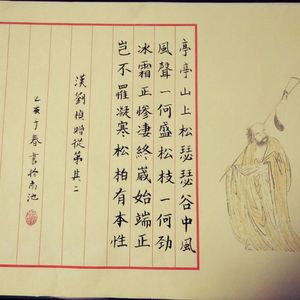 亭亭山上松瑟瑟谷中風
風聲一何盛松枝一何勁
冰霜正慘凄終歲始端正
岂不罹凝寒松柏有本性
漢劉楨贈從弟其二
亥于春書於南池